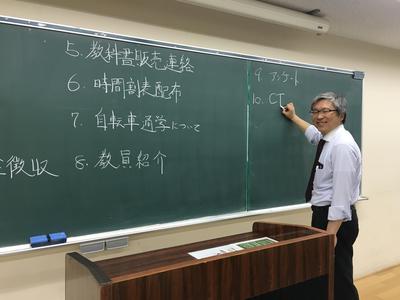 5. 教科書販売連絡
6. 時間割表配布
7. 自転車通学について
徴収
8. 教員紹介
9. アンケート
10. CT